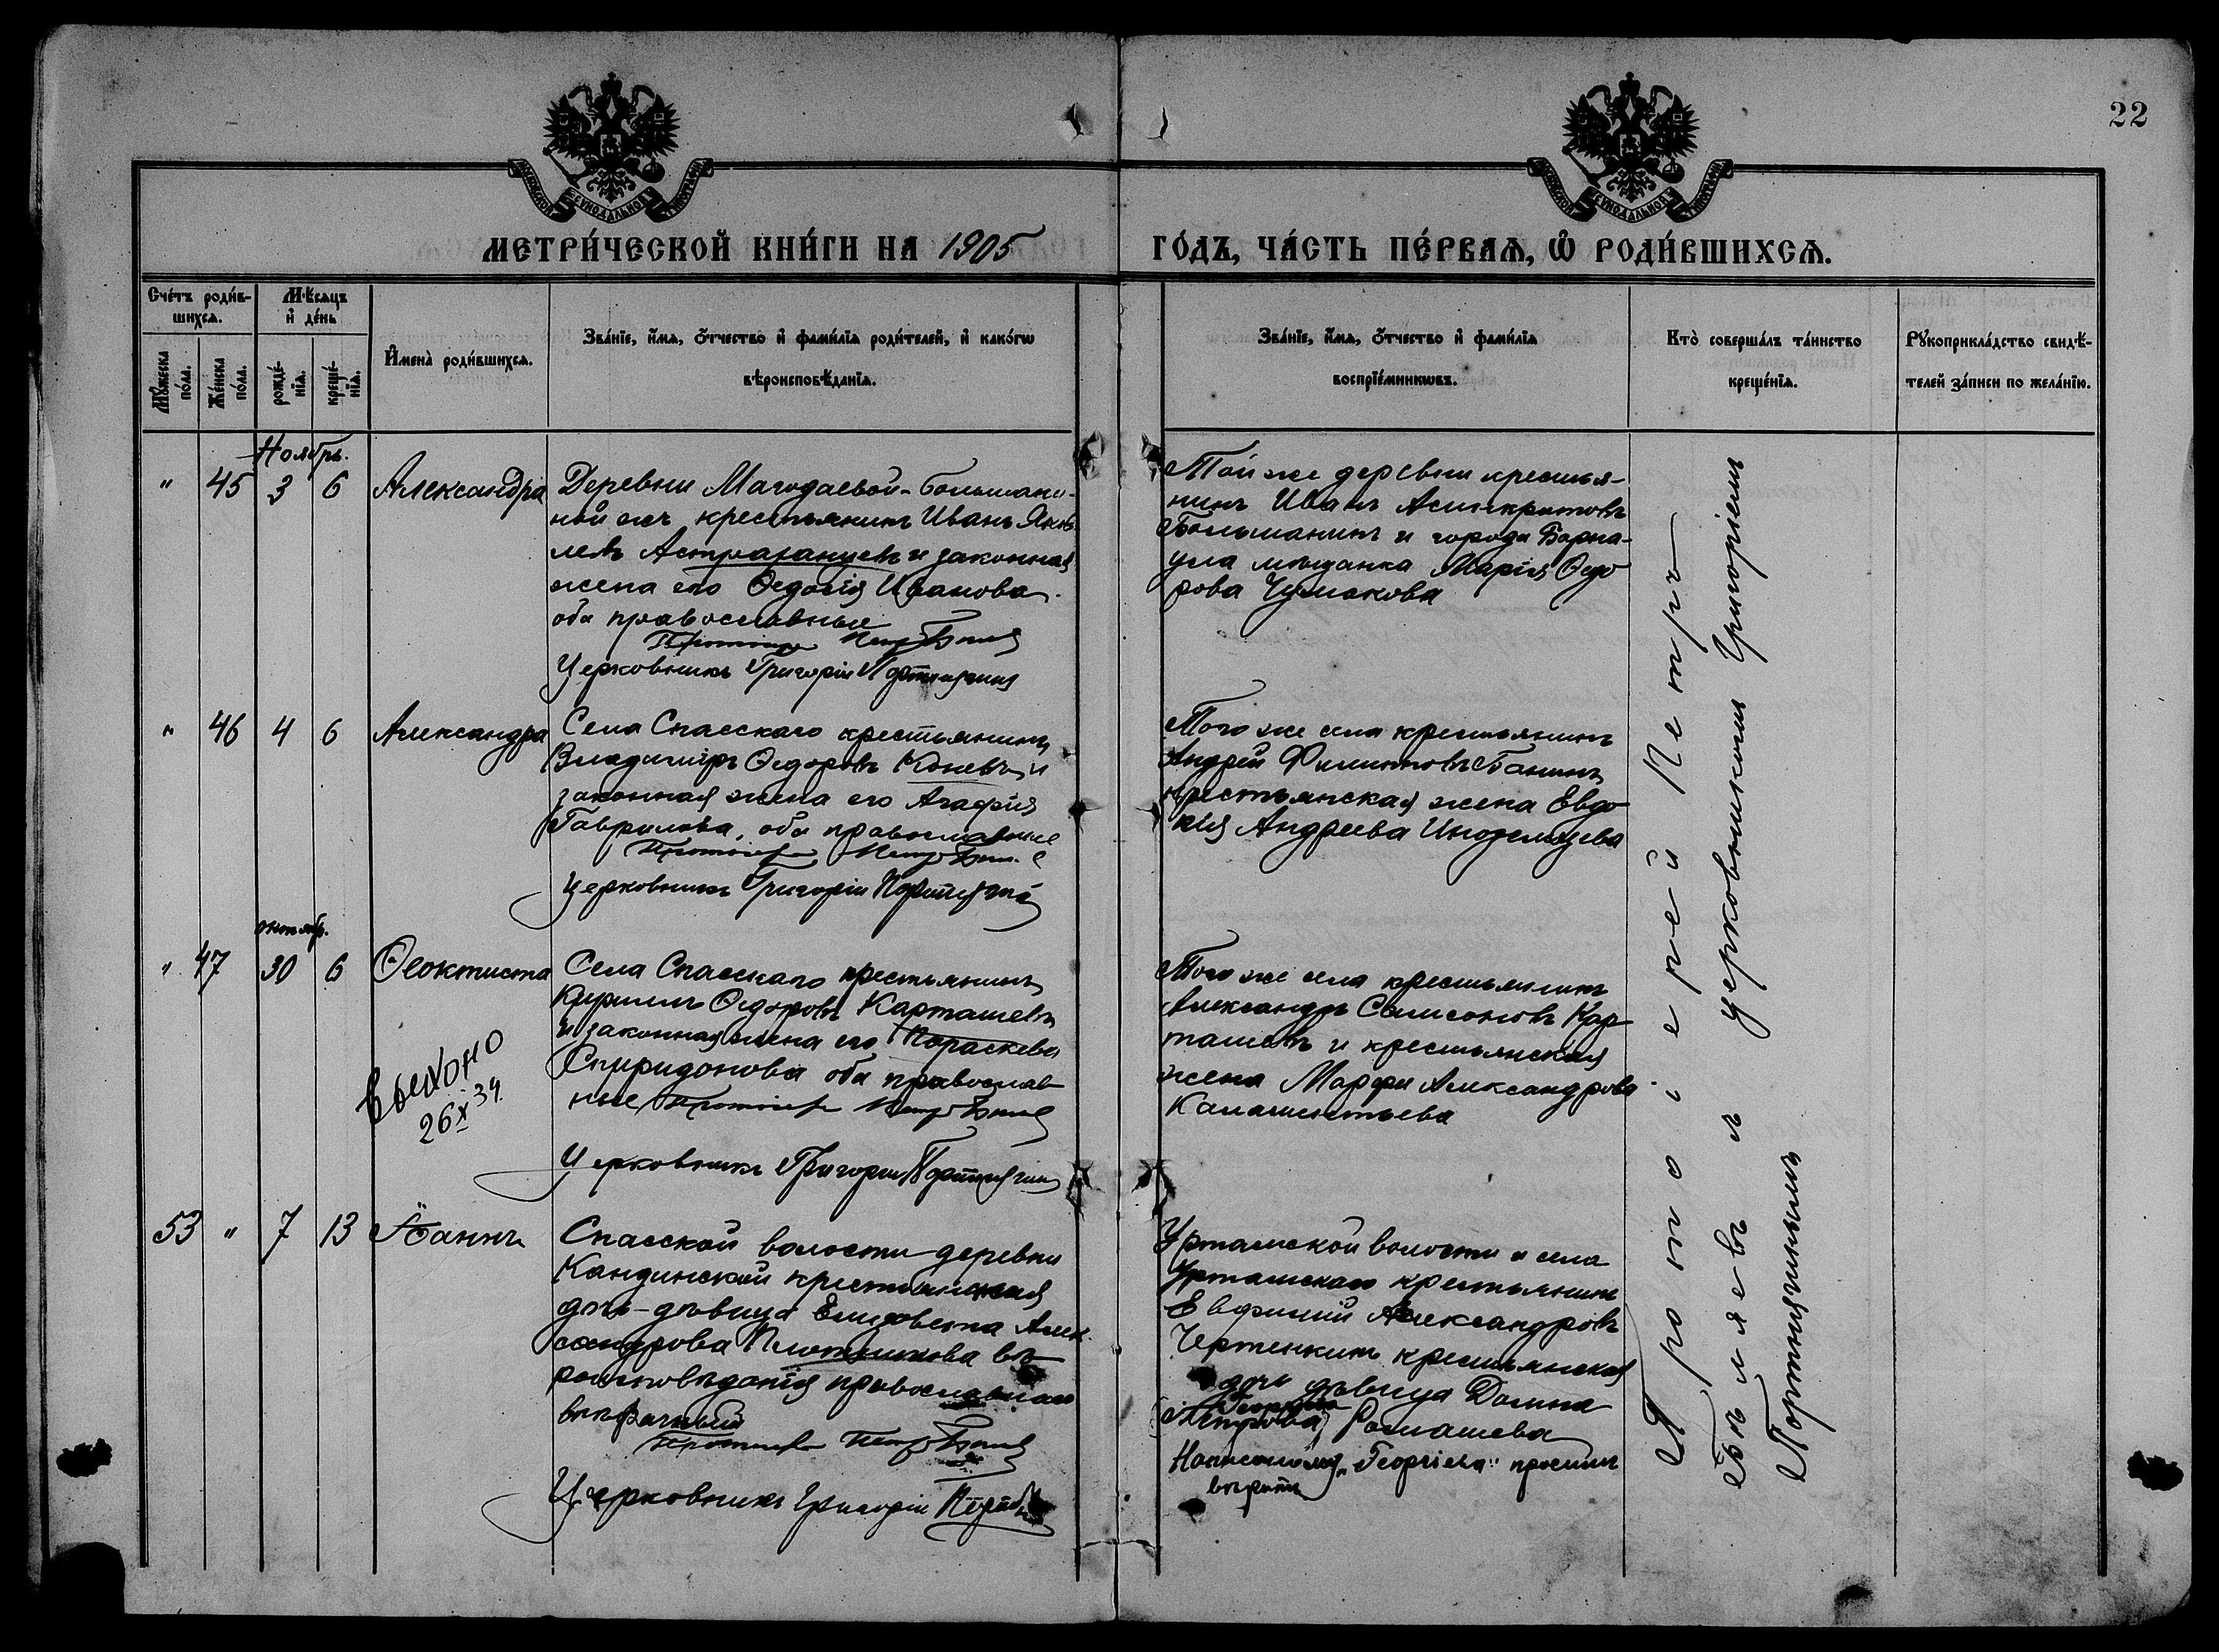 22
МЕТРИ́ЧЕСКОЙ КНИ́ГИ НА 1905 ГО́ДЪ, ЧА́СТЬ ПЕ́РВАѦ, Ѽ РОДИ́ВШИХСѦ.
Сче́тъ роди́вшихсѧ.
Мѣ́сѧцъ и҆ де́нь
Мꙋ́жеска по́ла.
Же́нска по́ла.
рожде́нїѧ.
креще́нїѧ.
И҆мена̀ роди́вшихсѧ.
Зва́нїе, и҆́мѧ, ѻ҆́тчество и҆ фами́лїѧ роди́телей, и҆ како́гѡ
вѣроисповѣ́данїѧ.
Зва́нїе, и҆́мѧ, ѻ҆́тчество и҆ фами́лїѧ
воспрїе́мникѡвъ.
Кто̀ соверша́лъ та́инство
креще́нїѧ.
Рꙋкоприкла́дство свидѣ́-
телей за́писи по жела́нїю.
Ноябрь.
" 45 3 6 Александра
Деревни
ной же крестьянинъ Иванъ
Астраханцевъ и законная
жена его Ѳедосія Иванова
оба православные
Протоіерей Петръ
Церковникъ Григорій Портнягинъ
Той же деревни крестья-
нинъ Иванъ Асинкритовъ
Большанинъ и города Барна-
ула мѣщанка Марія Ѳедо
рова Чумакова
" 46 4 6 Александра
Села Спасскаго крестьянинъ
Владиміръ Ѳедоровъ Коневъ и
законная жена его Агафія
Гаврилова, оба православные
Протоіерей Петръ
Церковникъ Григорій Портнягинъ
Того же села крестьянинъ
Андрей Филиповъ Банинъ
крестьянская жена Евдо
кія Андреева Иноземцева
октябр.
" 47 30 6 Ѳеоктиста
Села Спасскаго крестьянинъ
Кириллъ Ѳедоровъ Карташевъ
и законная жена его Параскева
Спиридонова оба православ
ные Протоіерей Петръ
Церковникъ Григорій Портнягинъ
26 X 34.
Того же села крестьянинъ
Александръ Самсоновъ Кар
ташевъ и крестьянская
жена Марфа Александрова
53 " 7 13 Іоаннъ
Спасской волости деревни
Кандинской крестьянская
дочь-дѣвица Елизавета Алек
сандрова Плотникова вѣ
роисповѣданія православнаго
внѣбрачный
Протоіерей Петръ
Церковникъ Григорій
Уртамской волости и села
Уртамскаго крестьянинъ
Евфимій Александровъ
Чертенкинъ крестьянская
дочь дѣвица Домна
Георгіева
(Петрова) Ромашева
Написанному „Георгіева" просимъ
вѣрить
Протоіерей Петръ
Бѣляевъ церковникомъ Григоріемъ
Портнягинымъ